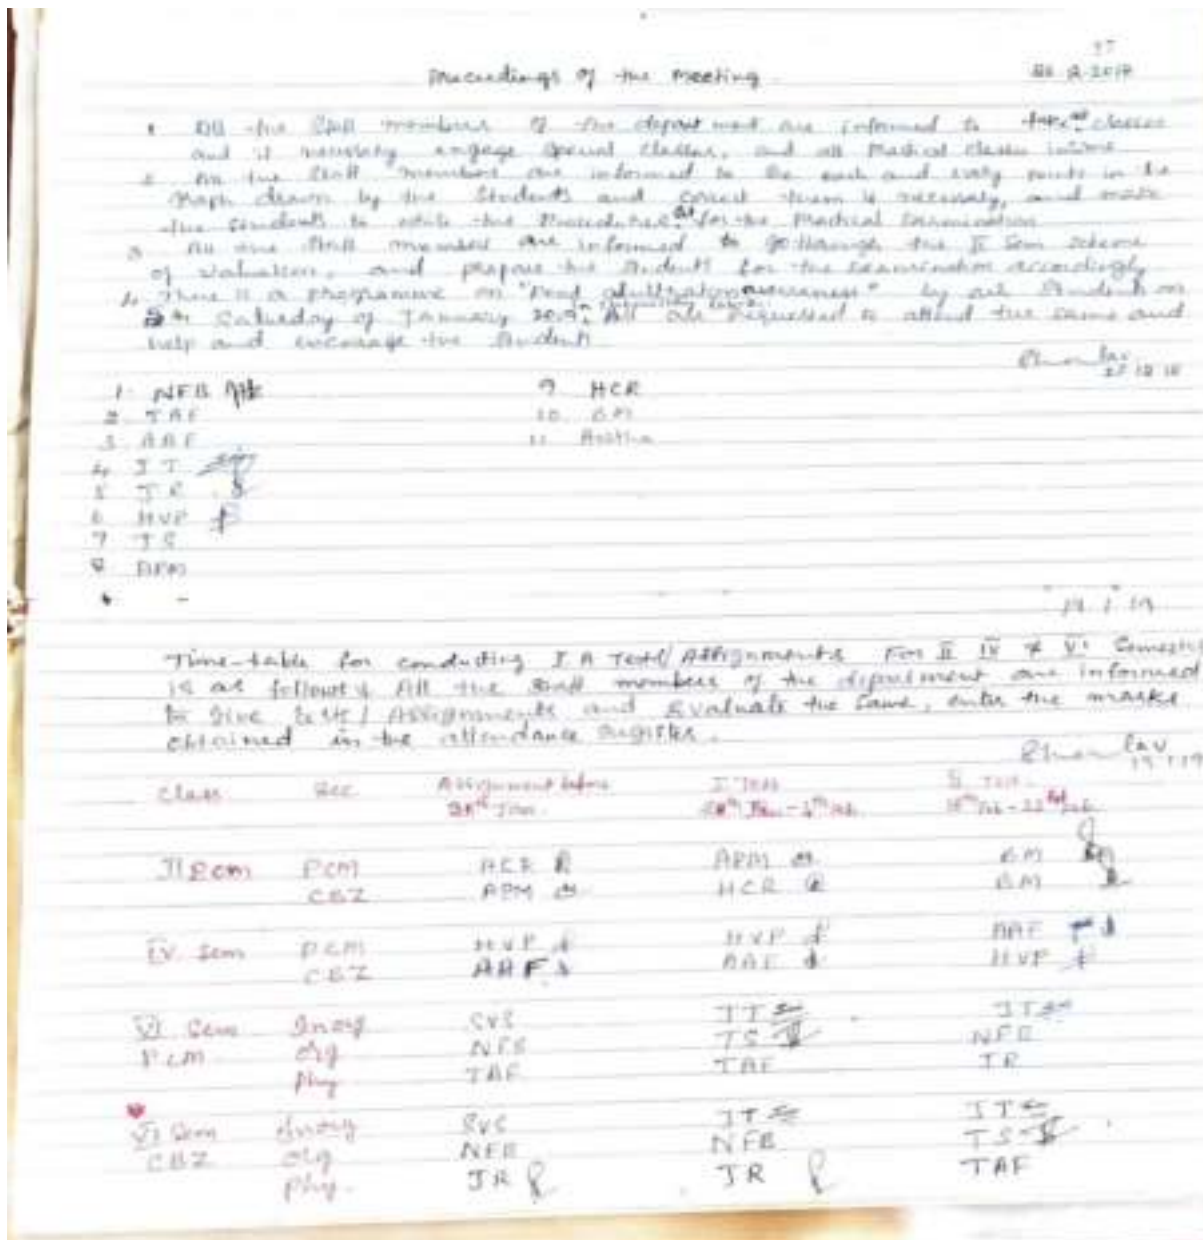 Proceedings of the Meeting
1 All the Staff members of the department are informed to take classes
and if necessary engage special classes, and all Practical classes
2 All the Staff members are informed to see each and every points in the
graph drawn by the Students and correct them if necessary, and make
the students to write the Procedures for the Practical Examination
3 All the Staff members are informed to go through the II Sem scheme
of valuation, and prepare the students for the examination accordingly
4. There is a programme on "Food adulteration awareness" by our Students on
Saturday of January 2019. All are requested to attend the same and
help and encourage the Students
27 12 18
1. NFB
2 TAF
3 AAF
4 JT
5 JR
6 HVP
7 TS
8 APM
9 HCR
10. BM
11.
19. 1. 19
Time-table for conducting I A Test/Assignments For II IV & VI Semester
is as follows. All the Staff members of the department are informed
to give tests/Assignments and Evaluate the same, enter the marks
obtained in the attendance register.
19.1.19
Class Sec Assignment before I Test II Test
Jan.
II Sem PCM HCR APM BM
CBZ APM HCR BM
IV Sem PCM HVP HVP AAF
CBZ AAF AAF HVP
VI Sem Inorg SVS JT JT
PCM Org NFB TS NFB
Phy TAF TAF JR
VI Sem Inorg SVS JT JT
CBZ Org NFB NFB TS
Phy. JR JR TAF